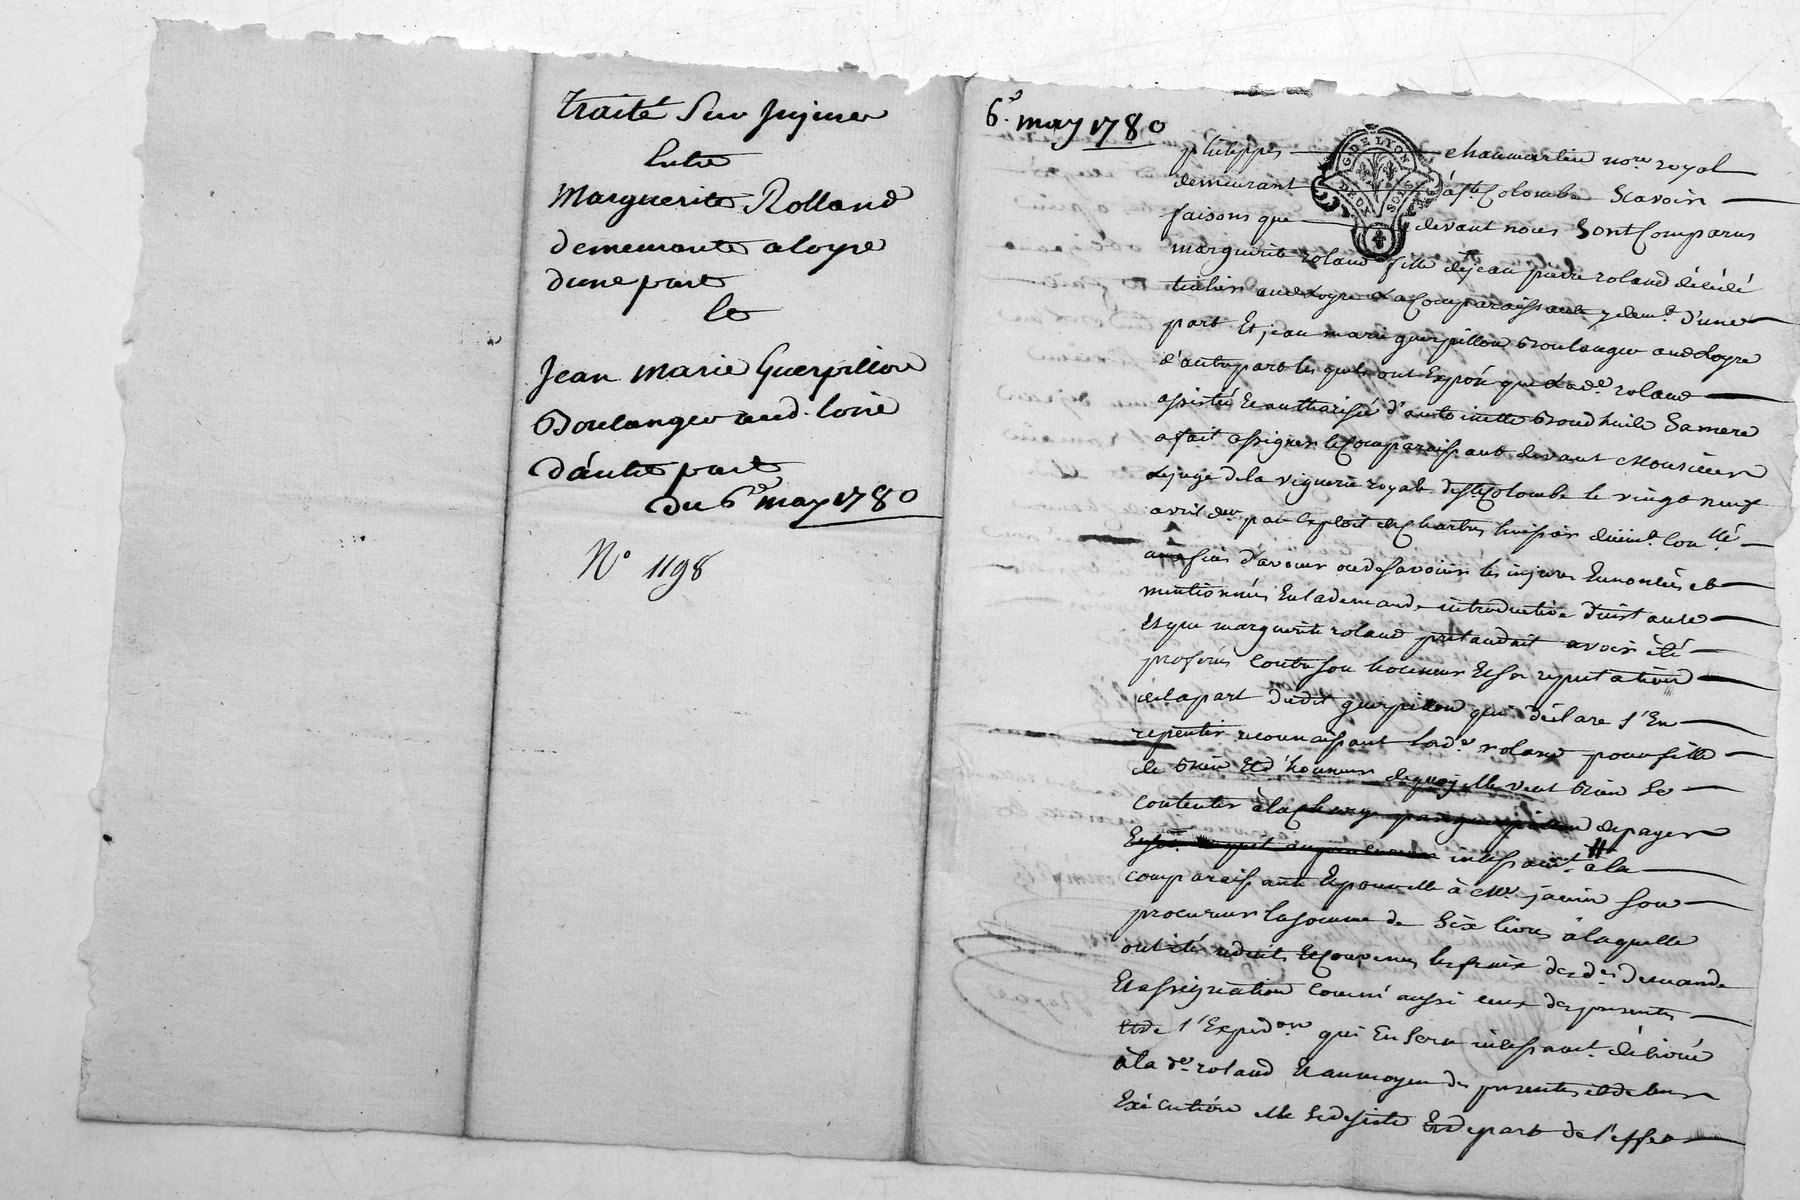 traité Sur Injures
Entre
Marguerite Rolland
demeurante a loyre
d'une part
Et
Jean Marie Guerpillion
Boulanger aud. loire
d'autre part
du 6e may 1780
N° 1198
6e. may 1780
G. DE LYON
DEUX SOLS
philippes chaumartin nore royal
demeurant à ste Colombe Scavoir
faisons que devant nous Sont Comparus
marguerite roland fille de jean pierre roland décédé
aud Loyre La Comparaissante y demt. d'une
part Et jean marie guerpillon Boulanger aud Loyre
d'autre part les quels ont Exposé que Lade roland
assistée Et authorisée d'antoinette Sa mere
a fait assigner le Comparaissant devant Monsieur
Le juge de la viguerie royale de ste Colombe le vingt neuf
avril der par Exploit de huissier
aux fins d'avouer ou desavouer les injures Enoncées et
mentionnées En la demande introductive d'instance
Et que marguerite roland pretendait avoir été
proferés Contre Son honneur Et Sa reputation
de la part dudit guerpillon qui déclare s'En
repentir reconnaissant lade roland pour fille
de bien Et d'honneur de quoy elle veut bien Se
contenter à la charge par guerpillon de payer
incessamt. à la
comparaissante Et pour elle à Me. janin Son
procureur la Somme de Six livres à laquelle
ont étés reduits Et Convenus les fraix desdes demande
Et assignation comme aussi ceux des presentes
Et de l'Expedon qui En Sera incessamt. délivrée
à la de roland Et au moyen des presentes et de leur
Exécution elle Se desiste Et depart de l'effet